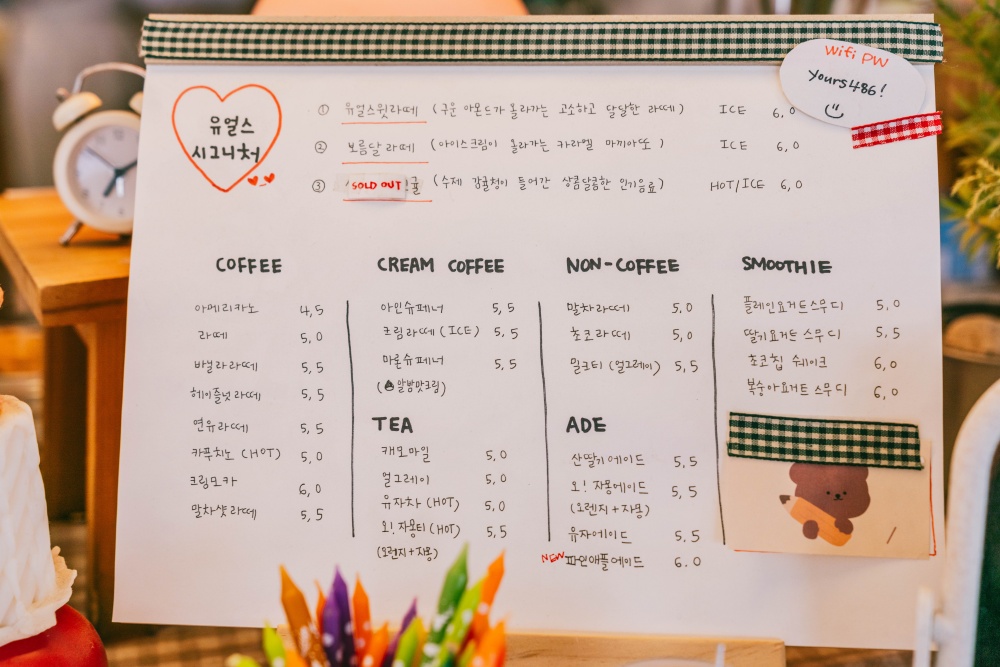 Wifi PW
Yours486!
유얼스
시그니처
① 유얼스윗라떼 (구운 아몬드가 올라가는 고소하고 달달한 라떼) ICE 6,0
② 보름달라떼 (아이스크림이 올라가는 카라멜 마끼아또) ICE 6,0
③ SOLD OUT 귤 (수제 감귤청이 들어간 상큼달콤한 인기음료) HOT/ICE 6,0
COFFEE
아메리카노 4,5
라떼 5,0
바닐라라떼 5,5
헤이즐넛라떼 5,5
연유라떼 5,5
카푸치노 (HOT) 5,0
크림모카 6,0
말차샷라떼 5,5
CREAM COFFEE
아인슈페너 5,5
크림라떼 (ICE) 5,5
마론슈페너 5,5
(알밤맛크림)
TEA
캐모마일 5,0
얼그레이 5,0
유자차 (HOT) 5,0
오! 자몽티 (HOT) 5,5
(오렌지+자몽)
NON-COFFEE
말차라떼 5,0
초코라떼 5,0
밀크티 (얼그레이) 5,5
ADE
산딸기에이드 5,5
오! 자몽에이드 5,5
(오렌지+자몽)
유자에이드 5.5
NEW 파인애플에이드 6.0
SMOOTHIE
플레인요거트스무디 5,0
딸기요거트스무디 5,5
초코칩 쉐이크 6,0
복숭아요거트스무디 6,0